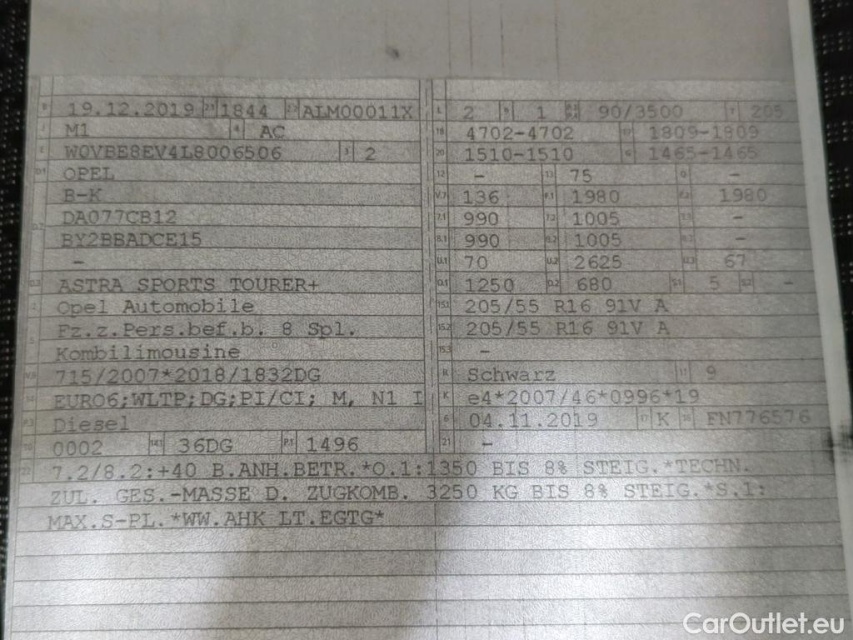 19.12.2019 1844 ALM00011X
M1 AC
W0VBE8EV4L8006506 2
OPEL
B-K
DA077CB12
BY2BBADCE15
-
ASTRA SPORTS TOURER+
Opel Automobile
Fz.z.Pers.bef.b. 8 Spl.
Kombilimousine
715/2007*2018/1832DG
EURO6;WLTP;DG;PI/CI; M, N1 I
Diesel
0002 36DG 1496
2 1 90/3500 205
4702-4702 1809-1809
1510-1510 1465-1465
- 75 -
136 1980 1980
990 1005 -
990 1005 -
70 2625 67
1250 680 5 -
205/55 R16 91V A
205/55 R16 91V A
-
Schwarz 9
e4*2007/46*0996*19
04.11.2019 K FN776576
-
7.2/8.2:+40 B.ANH.BETR.*O.1:1350 BIS 8% STEIG.*TECHN.
ZUL. GES.-MASSE D. ZUGKOMB. 3250 KG BIS 8% STEIG.*S.1:
MAX.S-PL.*WW.AHK LT.EGTG*
CarOutlet.eu